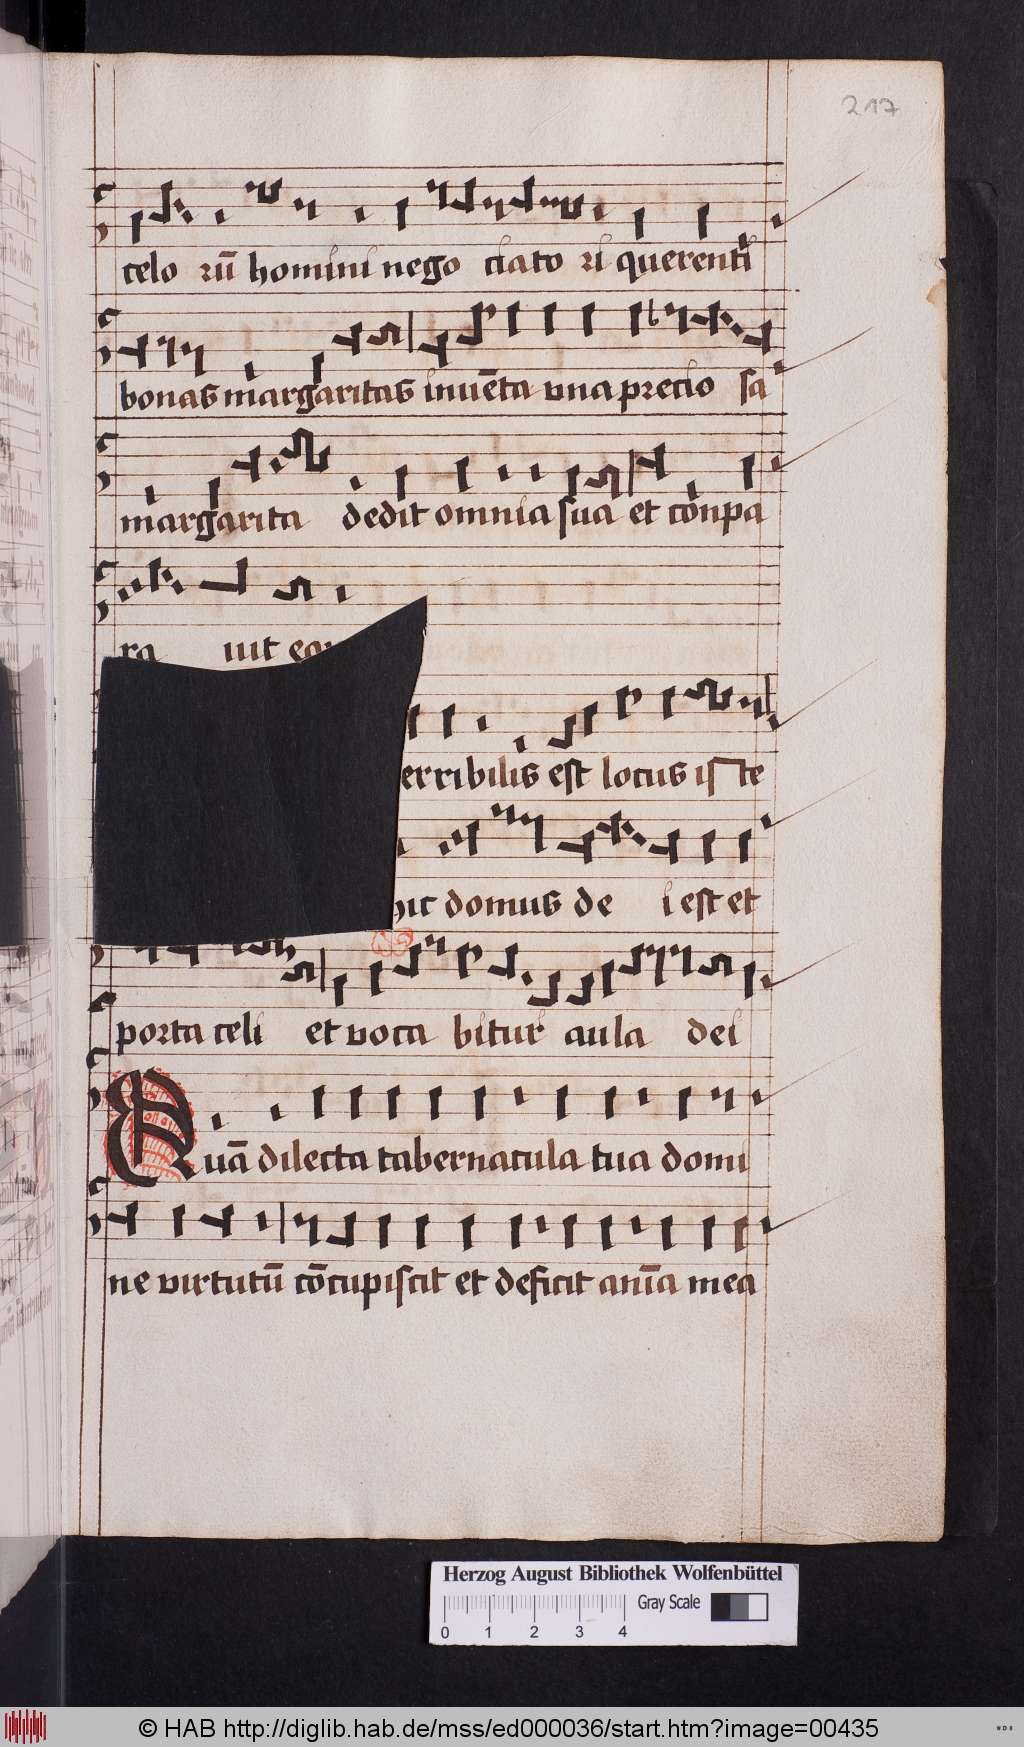 217
celo rū homini nego ciato ri querenti
bonas margaritas inuēta vna precio sa
margarita dedit omnia sua et conpa
ra uit
erribilis est locus iste
hic domus de i est et
porta celi et voca bitur aula dei
Quā dilecta tabernacula tua domi
ne virtutū cōcupiscit et deficit anīa mea
Herzog August Bibliothek Wolfenbüttel
Gray Scale
0 1 2 3 4
© HAB http://diglib.hab.de/mss/ed000036/start.htm?image=00435